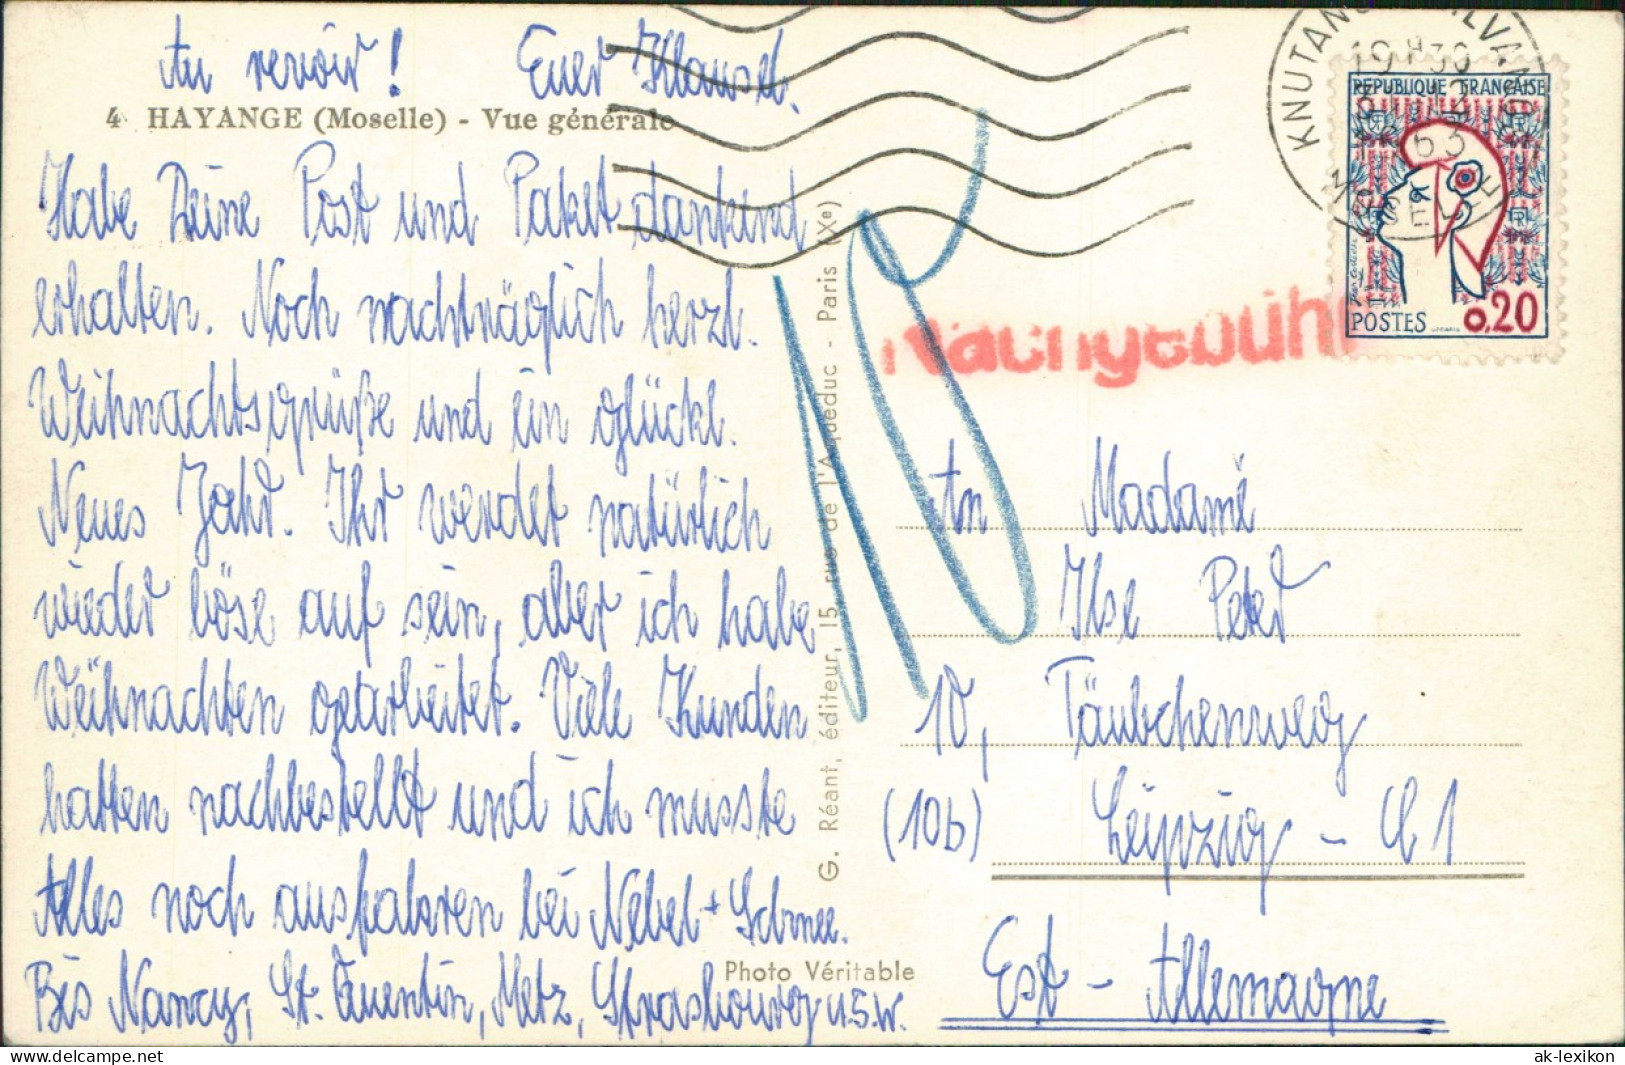 Au revoir! Euer Klausel.
4 HAYANGE (Moselle) - Vue générale
Habe Deine Post und Paket dankend
erhalten. Noch nachträglich herzl.
Weihnachtsgrüße und ein glückl.
Neues Jahr. Ihr werdet natürlich
wieder böse auf sein, aber ich habe
Weihnachten gearbeitet. Viele Kunden
hatten nachbestellt und ich musste
Alles noch ausfahren bei Nebel + Schnee.
Bis Nancy, St. Quentin, Metz, Strasbourg u.s.w.
G. Réant, éditeur, 15, rue de l'Aqueduc - Paris (Xe)
Photo Véritable
10
Nachgebühr
KNUTANGE
MOSELLE
19 H 30
63
REPUBLIQUE FRANÇAISE
POSTES 0,20
An Madame
Ilse Peter
10, Täubchenweg
(10b) Leipzig - C 1
Est - Allemagne
ak-ansichtskarten.de
ak-lexikon